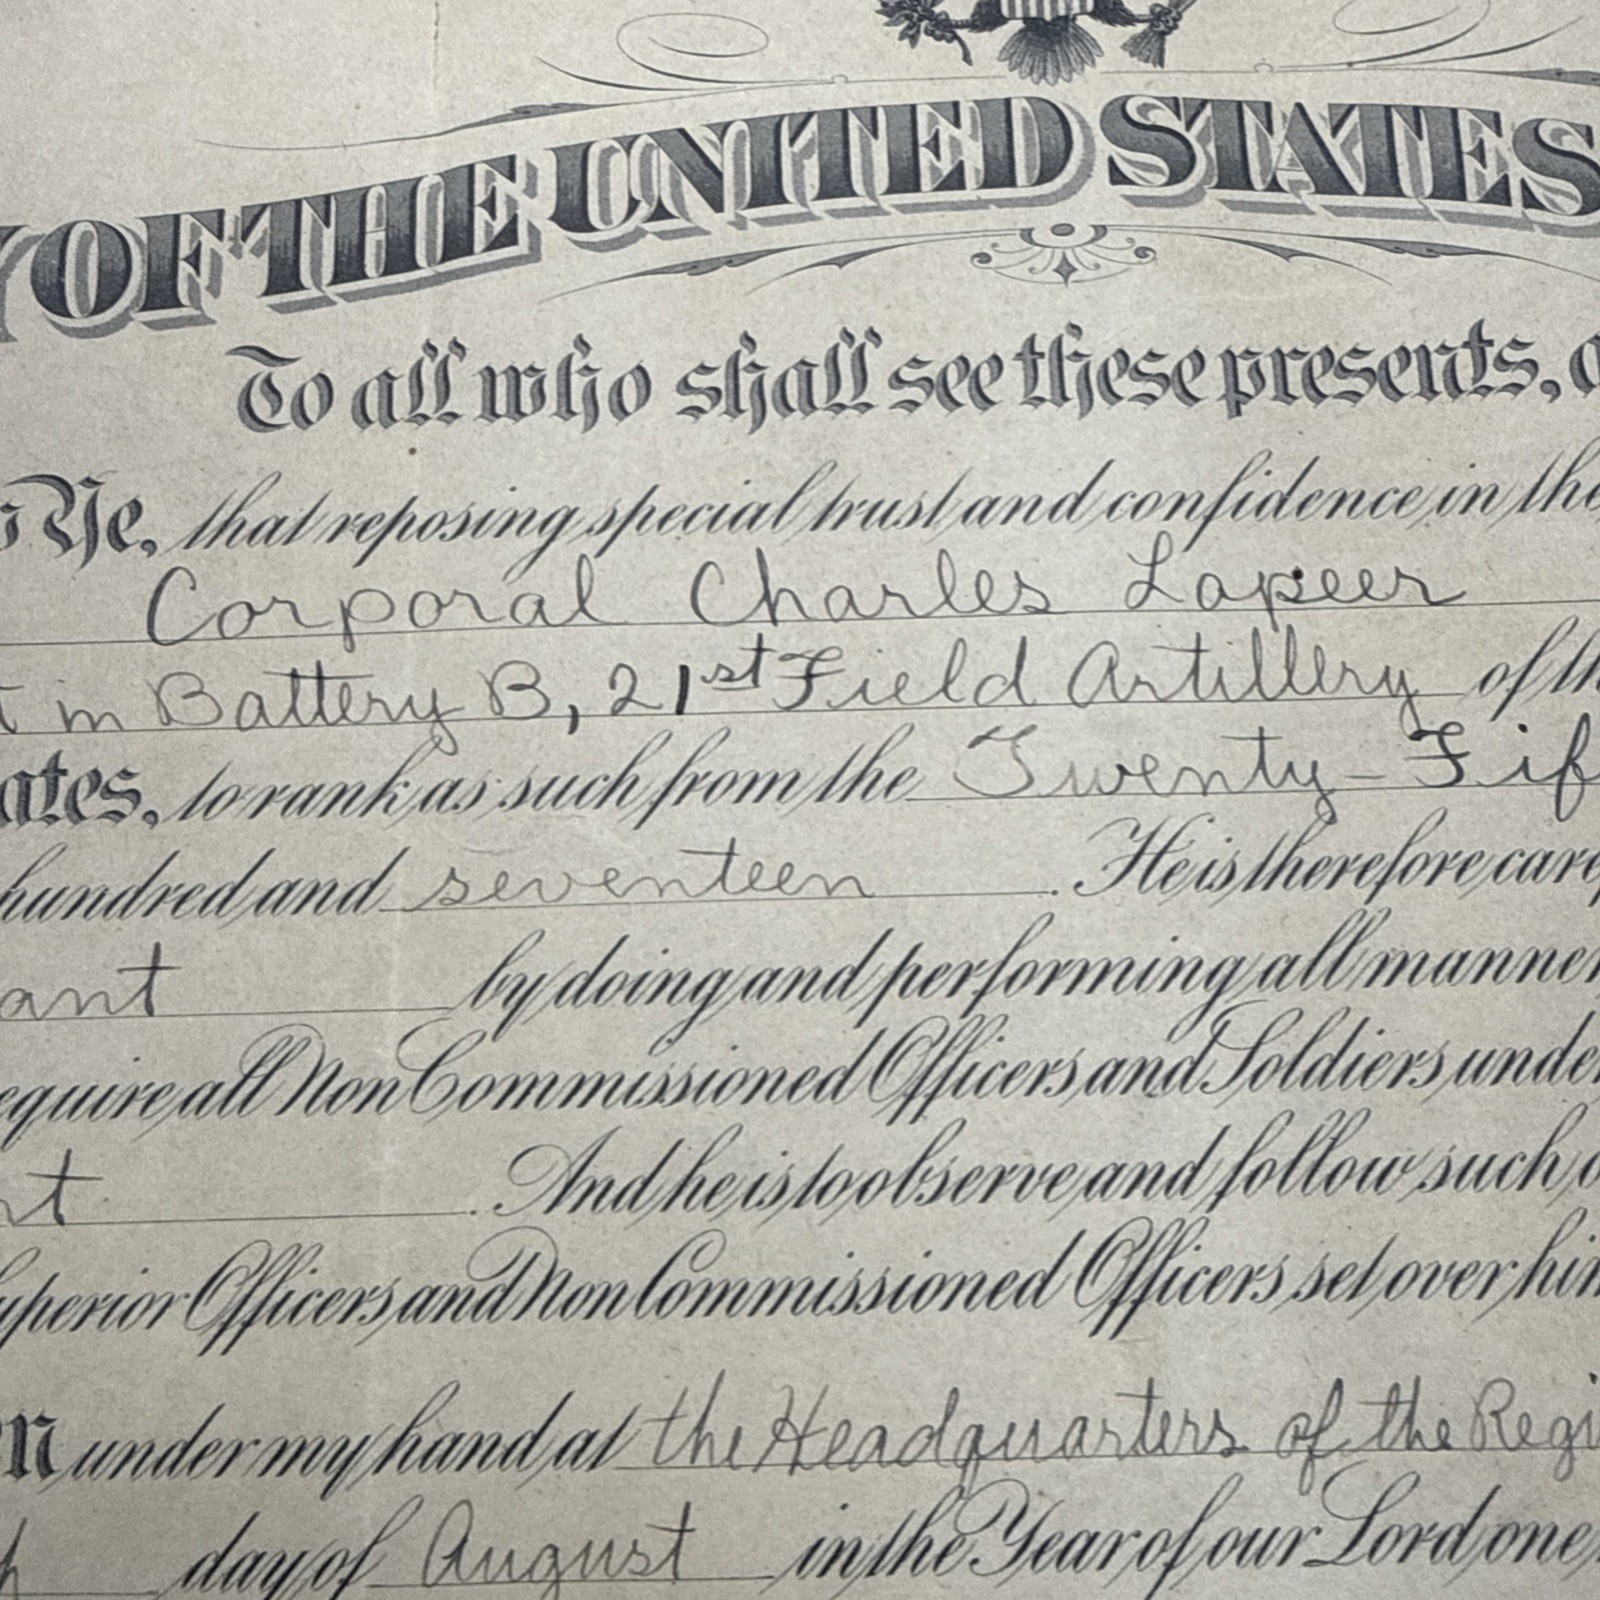 OF THE UNITED STATES
To all who shall see these presents,
Ye, that reposing special trust and confidence in the
Corporal Charles Lapeer
t in Battery B, 21st Field Artillery of th
ates, to rank as such from the Twenty-Fif
hundred and seventeen. He is therefore care
ant by doing and performing all manner
equire all Non Commissioned Officers and Soldiers under
nt. And he is to observe and follow such o
uperior Officers and Non Commissioned Officers set over him
n under my hand at the Headquarters of the Regi
day of August in the Year of our Lord one